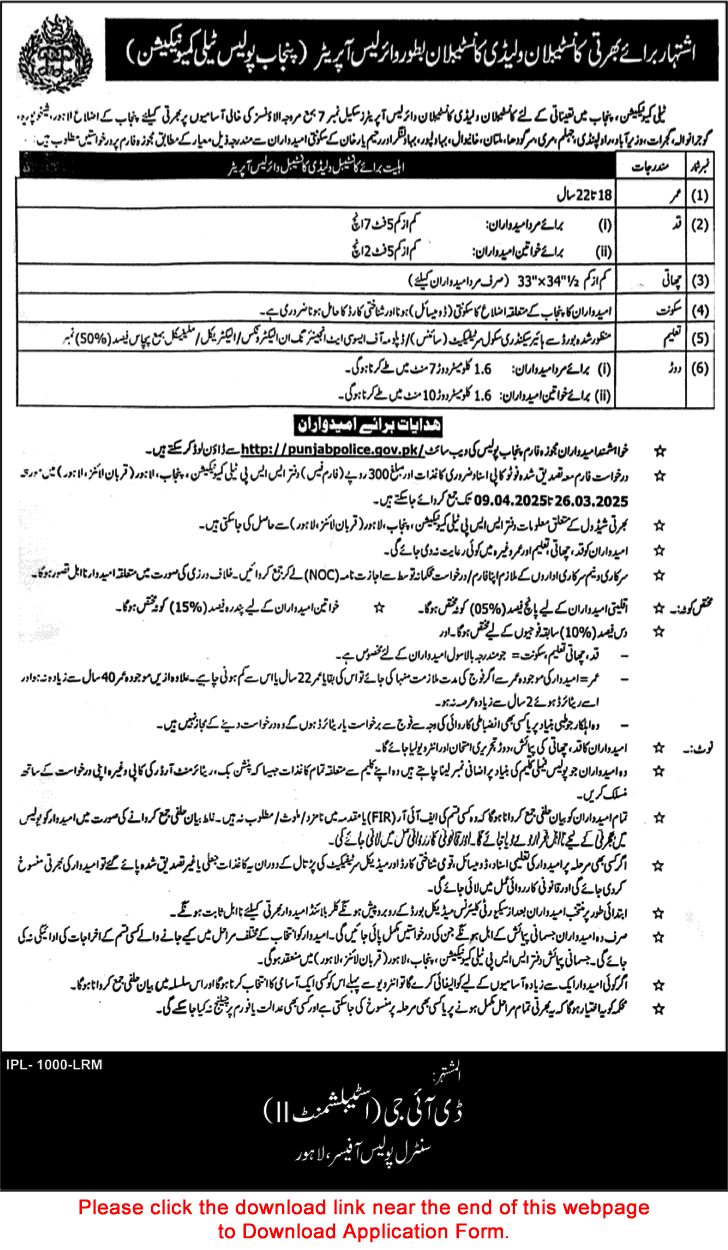 اشتہار برائے بھرتی کانسٹیبلان ولیڈی کانسٹیبلان بطور وائرلیس آپریٹر (پنجاب پولیس ٹیلی کمیونیکیشن)
ٹیلی کمیونیکیشن، پنجاب میں تعیناتی کے لئے کانسٹیبلان ولیڈی کانسٹیبلان وائرلیس آپریٹرز سکیل نمبر 7 بمع مروجہ الاؤنسز کی خالی آسامیوں پر بھرتی کیلئے پنجاب کے اضلاع لاہور، شیخوپورہ،
گوجرانوالہ، گجرات، وزیرآباد، راولپنڈی، جہلم، مری، سرگودھا، ملتان، خانیوال، بہاولپور، بہاولنگر اور رحیم یار خان کے سکونتی امیدواران سے مندرجہ ذیل معیار کے مطابق مجوزہ فارم پر درخواستیں مطلوب ہیں:
نمبر شمار مندرجات اہلیت برائے کانسٹیبل ولیڈی کانسٹیبل وائرلیس آپریٹر
(1) عمر 18 تا 22 سال
(2) قد (i) برائے مرد امیدواران: کم از کم 5 فٹ 7 انچ
(ii) برائے خواتین امیدواران: کم از کم 5 فٹ 2 انچ
(3) چھاتی کم از کم 33"×34½" (صرف مرد امیدواران کیلئے)
(4) سکونت امیدواران کا پنجاب کے متعلقہ اضلاع کا سکونتی (ڈومیسائل) ہونا اور شناختی کارڈ کا حامل ہونا ضروری ہے۔
(5) تعلیم منظور شدہ بورڈ سے ہائیر سیکنڈری سکول سرٹیفکیٹ (سائنس)/ڈپلومہ آف ایسوسی ایٹ انجینئرنگ ان الیکٹرونکس/الیکٹریکل/مکینیکل بمع پچاس فیصد (50%) نمبر
(6) دوڑ (i) برائے مرد امیدواران: 1.6 کلومیٹر دوڑ 7 منٹ میں طے کرنا ہوگی۔
(ii) برائے خواتین امیدواران: 1.6 کلومیٹر دوڑ 10 منٹ میں طے کرنا ہوگی۔
ہدایات برائے امیدواران
☆ خواہشمند امیدواران مجوزہ فارم پنجاب پولیس کی ویب سائٹ http://punjabpolice.gov.pk/ سے ڈاؤن لوڈ کر سکتے ہیں۔
☆ درخواست فارم معہ تصدیق شدہ فوٹو کاپی اسناد ضروری کاغذات اور مبلغ 300 روپے (فارم فیس) دفتر ایس ایس پی ٹیلی کمیونیکیشن، پنجاب، لاہور (قربان لائنز، لاہور) میں مورخہ
26.03.2025 تا 09.04.2025 تک جمع کروائے جا سکتے ہیں۔
☆ بھرتی شیڈول کے متعلق معلومات دفتر ایس ایس پی ٹیلی کمیونیکیشن، پنجاب، لاہور (قربان لائنز، لاہور) سے حاصل کی جا سکتی ہیں۔
☆ امیدواران کو قد، چھاتی، تعلیم اور عمر وغیرہ میں کوئی رعایت نہ دی جائے گی۔
☆ سرکاری و نیم سرکاری اداروں کے ملازم اپنا فارم/درخواست محکمانہ توسط سے اجازت نامہ (NOC) لے کر جمع کروائیں۔ خلاف ورزی کی صورت میں متعلقہ امیدوار نااہل تصور ہوگا۔
مختص کوٹہ:۔ ☆ اقلیتی امیدواران کے لیے پانچ فیصد (05%) کوٹہ مختص ہوگا۔ ☆ خواتین امیدواران کے لیے پندرہ فیصد (15%) کوٹہ مختص ہوگا۔
☆ دس فیصد (10%) سابقہ فوجیوں کے لیے مختص ہوگا۔ اور
– قد، چھاتی تعلیم، سکونت = جو مندرجہ بالا سول امیدواران کے لئے مخصوص ہے۔
– عمر = امیدوار کی موجودہ عمر سے اگر فوج کی مدت ملازمت منہا کی جائے تو اس کی بقایا عمر 22 سال یا اس سے کم ہونی چاہیے۔ علاوہ ازیں موجودہ عمر 40 سال سے زیادہ نہ ہو اور
اسے ریٹائرڈ ہوئے 2 سال سے زیادہ عرصہ نہ ہو۔
– وہ اہلکار جو طبی بنیاد پر یا کسی بھی انضباطی کاروائی کی وجہ سے فوج سے برخاست یا ریٹائرڈ ہوں گے وہ درخواست دینے کے مجاز نہیں ہیں۔
نوٹ:۔ ☆ امیدواران کا قد، چھاتی کی پیمائش، دوڑ، تحریری امتحان اور انٹرویو لیا جائے گا۔
☆ وہ امیدواران جو پولیس فیملی کلیم کی بنیاد پر اضافی نمبر لینا چاہتے ہیں وہ اپنے کلیم سے متعلق تمام کاغذات جیسا کہ پنشن بک، ریٹائرمنٹ آرڈر کی کاپی وغیرہ اپنی درخواست کے ساتھ
منسلک کریں۔
☆ تمام امیدواران کو بیان حلفی جمع کروانا ہوگا کہ وہ کسی قسم کی ایف آئی آر (FIR) یا مقدمہ میں نامزد/ملوث/مطلوب نہ ہیں۔ غلط بیان حلفی جمع کروانے کی صورت میں امیدوار کو پولیس
میں بھرتی کے لیے نااہل قرار دے دیا جائے گا۔ اور قانونی کارروائی عمل میں لائی جائے گی۔
☆ اگر کسی بھی مرحلہ پر امیدوار کی تعلیمی اسناد، ڈومیسائل، قومی شناختی کارڈ اور میڈیکل سرٹیفکیٹ کی پڑتال کے دوران یہ کاغذات جعلی یا غیر تصدیق شدہ پائے گئے تو امیدوار کی بھرتی منسوخ
کر دی جائے گی اور قانونی کارروائی عمل میں لائی جائے گی۔
☆ ابتدائی طور پر منتخب امیدواران بعد از سکیورٹی کلیئرنس میڈیکل بورڈ کے روبرو پیش ہونگے کلر بلائنڈ امیدوار بھرتی کیلئے نااہل ثابت ہونگے۔
☆ صرف وہ امیدواران جسمانی پیمائش کے اہل ہونگے جن کی درخواستیں مکمل پائی جائیں گی۔ امیدوار کو انتخاب کے مختلف مراحل میں کیے جانے والے کسی قسم کے اخراجات کی ادائیگی نہ کی
جائے گی۔ جسمانی پیمائش دفتر ایس ایس پی ٹیلی کمیونیکیشن، پنجاب، لاہور (قربان لائنز، لاہور) میں منعقد ہوگی۔
☆ اگر کوئی امیدوار ایک سے زیادہ آسامیوں کے لیے کوالیفائی کرے گا تو انٹرویو سے پہلے اس کو کسی ایک آسامی کا انتخاب کرنا ہوگا اور اس سلسلہ میں بیان حلفی جمع کروانا ہوگا۔
☆ محکمہ کو یہ اختیار ہوگا کہ یہ بھرتی تمام مراحل مکمل ہونے پر یا کسی بھی مرحلہ پر منسوخ کی جا سکتی ہے اور کسی بھی عدالت یا فورم پر چیلنج نہ کیا جا سکے گی۔
IPL- 1000-LRM
المشتہر:
ڈی آئی جی (اسٹیبلشمنٹ II)
سنٹرل پولیس آفیسر، لاہور
Please click the download link near the end of this webpage
to Download Application Form.